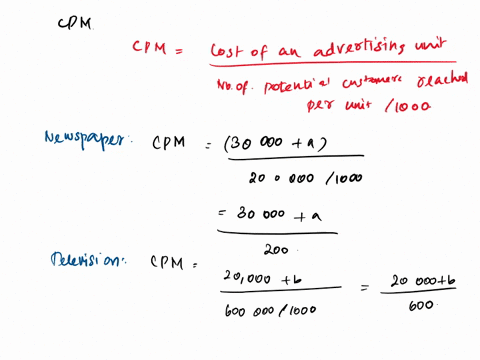 CPM
CPM = Cost of an advertising unit
No. of. potential customers reached
per unit /1000
Newspaper: CPM = (30 000 + a)
200 000 /1000
= 30 000 + a
200
Television: CPM = 20,000 + b = 20 000+b
600 000/1000 600